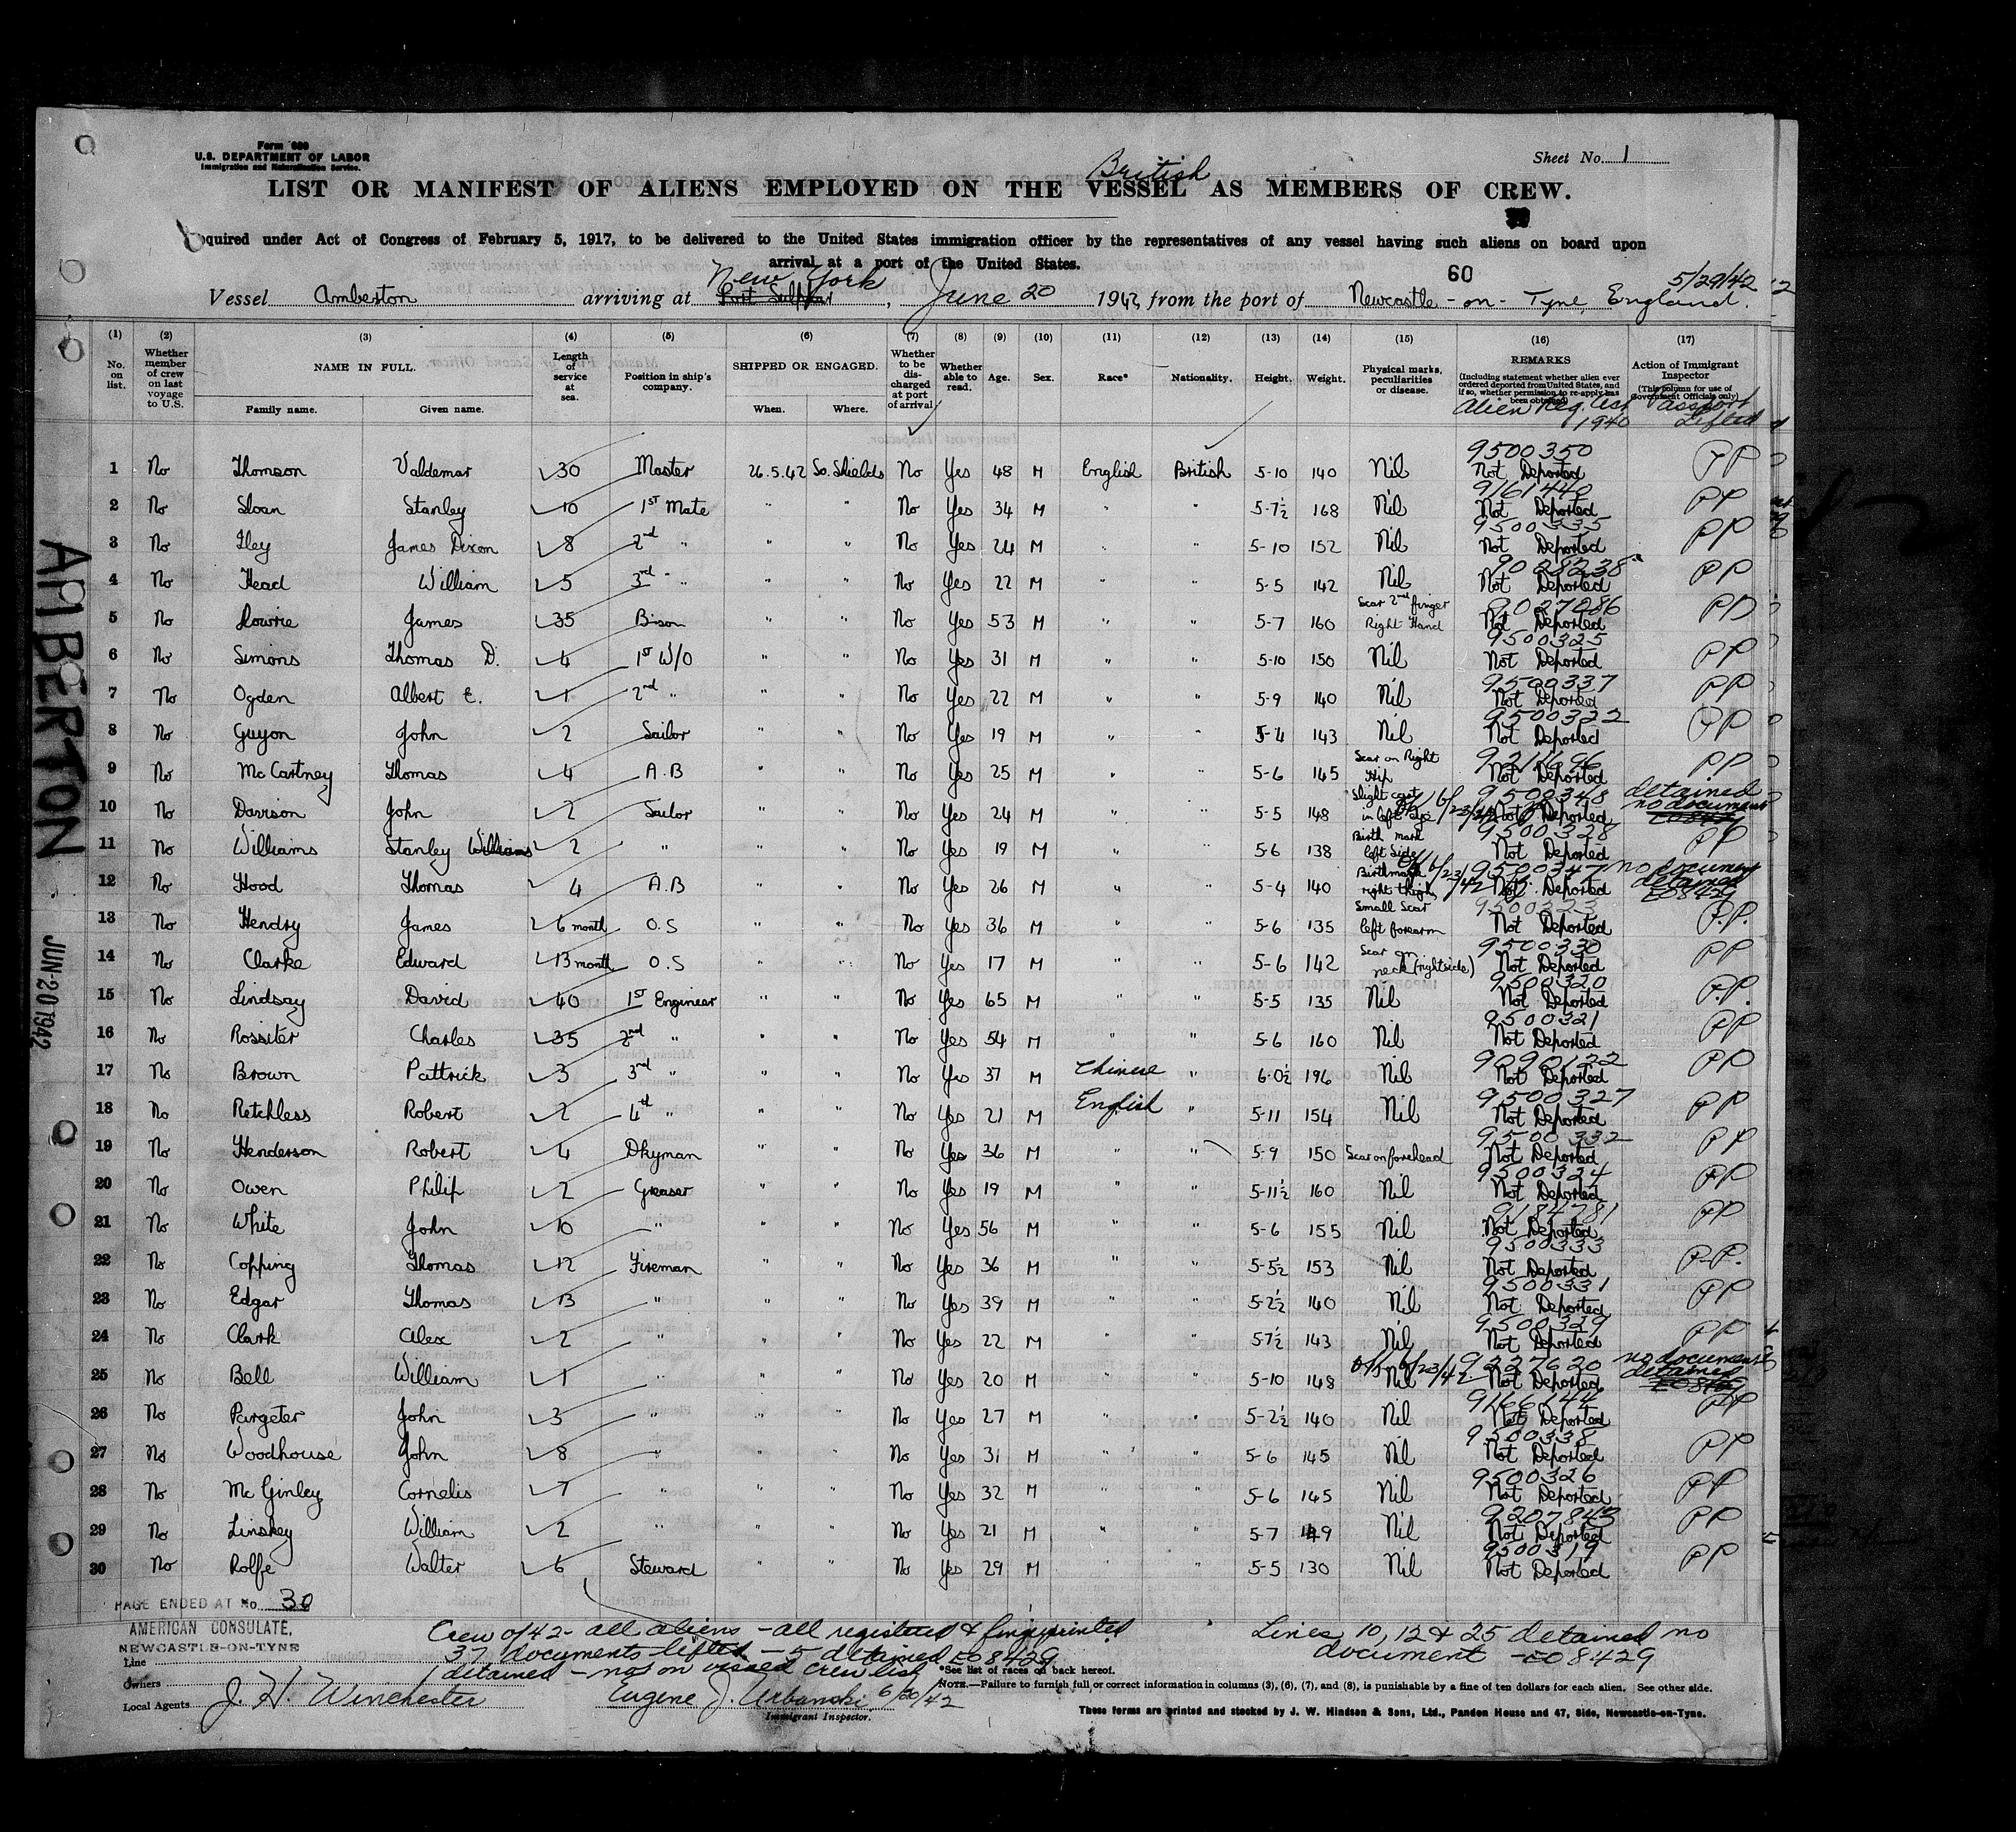 Form 680
U.S. DEPARTMENT OF LABOR
Immigration and Naturalization Service.
Sheet No. 1
British
LIST OR MANIFEST OF ALIENS EMPLOYED ON THE VESSEL AS MEMBERS OF CREW.
Required under Act of Congress of February 5, 1917, to be delivered to the United States immigration officer by the representatives of any vessel having such aliens on board upon
arrival at a port of the United States.
60
5/29/42
Vessel Amberton arriving at Port Sulphur New York, June 20 1942, from the port of Newcastle-on-Tyne, England.
(1) (2) (3) (4) (5) (6) (7) (8) (9) (10) (11) (12) (13) (14) (15) (16) (17)
No. on list. Whether member of crew on last voyage to U.S. NAME IN FULL. Family name. Given name. Length of service at sea. Position in ship's company. SHIPPED OR ENGAGED. When. Where. Whether to be discharged at port of arrival Whether able to read. Age. Sex. Race* Nationality. Height. Weight. Physical marks, peculiarities or disease. REMARKS (Including statement whether alien ever ordered deported from United States, and if so, whether permission to re-apply has been obtained) Action of Immigrant Inspector (This column for use of Government Officials only)
Alien Reg. Act 1940 Passport Lifted
1 No Thomson Valdemar 30 Master 26.5.42 So. Shields No Yes 48 M English British 5-10 140 Nil 9500350 Not Deported PP
2 No Sloan Stanley 10 1st Mate " " No Yes 34 M " " 5-7½ 168 Nil 9161440 Not Deported PP
3 No Iley James Dixon 8 2nd " " " No Yes 24 M " " 5-10 152 Nil 9500335 Not Deported PP
4 No Head William 5 3rd " " " No Yes 22 M " " 5-5 142 Nil 9028238 Not Deported PP
5 No Lowrie James 35 Bosun " " No Yes 53 M " " 5-7 160 Scar 2nd finger Right Hand 9027086 Not Deported PP
6 No Simons Thomas D. 4 1st W/O " " No Yes 31 M " " 5-10 150 Nil 9500325 Not Deported PP
7 No Ogden Albert E. 1 2nd " " " No Yes 22 M " " 5-9 140 Nil 9500337 Not Deported PP
8 No Guyon John 2 Sailor " " No Yes 19 M " " 5-4 143 Nil 9500322 Not Deported PP
9 No McCartney Thomas 4 A.B " " No Yes 25 M " " 5-6 145 Scar on Right Hip Not Deported P.P.
10 No Davison John 2 Sailor " " No Yes 24 M " " 5-5 148 Slight cast in left Eye 6/23/42 9500348 Not Deported detained no document
11 No Williams Stanley Williams 2 " " " No Yes 19 M " " 5-6 138 Birth mark left Side 9500328 Not Deported PP
12 No Hood Thomas 4 A.B " " No Yes 26 M " " 5-4 140 Birthmark right thigh 6/23/42 9500347 Not Deported no document detained E08429
13 No Hendry James 6 month O.S " " No Yes 36 M " " 5-6 135 Small Scar left forearm 9500323 Not Deported P.P.
14 No Clarke Edward 13 month O.S " " No Yes 17 M " " 5-6 142 Scar on neck (right side) 9500330 Not Deported PP
15 No Lindsay David 40 1st Engineer " " No Yes 65 M " " 5-5 135 Nil 9500320 Not Deported P.P.
16 No Rossiter Charles 35 2nd " " " No Yes 54 M " " 5-6 160 Nil 9500321 Not Deported PP
17 No Brown Pattrick 3 3rd " " " No Yes 37 M Chinese " 6-0½ 196 Nil 9090122 Not Deported PP
18 No Retchless Robert 2 4th " " " No Yes 21 M English " 5-11 154 Nil 9500327 Not Deported PP
19 No Henderson Robert 4 Dkyman " " No Yes 36 M " " 5-9 150 Scar on forehead 9500332 Not Deported PP
20 No Owen Philip 2 Greaser " " No Yes 19 M " " 5-11½ 160 Nil 9500324 Not Deported PP
21 No White John 10 " " " No Yes 56 M " " 5-6 155 Nil 9184781 Not Deported PP
22 No Copping Thomas 12 Fireman " " No Yes 36 M " " 5-5½ 153 Nil 9500333 Not Deported P.P.
23 No Edgar Thomas 13 " " " No Yes 39 M " " 5-2½ 140 Nil 9500331 Not Deported PP
24 No Clark Alex 2 " " " No Yes 22 M " " 5-7½ 143 Nil 9500329 Not Deported PP
25 No Bell William 1 " " " No Yes 20 M " " 5-10 148 Nil 6/23/42 9227620 Not Deported no document detained
26 No Pargeter John 3 " " " No Yes 27 M " " 5-2½ 140 Nil 9166144 Not Deported PP
27 No Woodhouse John 8 " " " No Yes 31 M " " 5-6 145 Nil 9500338 Not Deported PP
28 No McGinley Cornelis 7 " " " No Yes 32 M " " 5-6 145 Nil 9500326 Not Deported PP
29 No Linskey William 2 " " " No Yes 21 M " " 5-7 149 Nil 9207843 Not Deported PP
30 No Rolfe Walter 6 Steward " " No Yes 29 M " " 5-5 130 Nil 9500319 Not Deported PP
AMBERTON
JUN-20 1942
PAGE ENDED AT No. 30
AMERICAN CONSULATE,
NEWCASTLE-ON-TYNE
Crew of 42 - all aliens - all registered & fingerprinted
37 documents lifted - 5 detained E08429
1 detained - not on visaed crew list
Lines 10, 12 & 25 detained no
document - E08429
Line
Owners
Local Agents J. H. Winchester
Eugene J. Urbanski 6/20/42
Immigrant Inspector.
*See list of races on back hereof.
NOTE.—Failure to furnish full or correct information in columns (3), (6), (7), and (8), is punishable by a fine of ten dollars for each alien. See other side.
These forms are printed and stocked by J. W. Hindson & Sons, Ltd., Pandon House and 47, Side, Newcastle-on-Tyne.